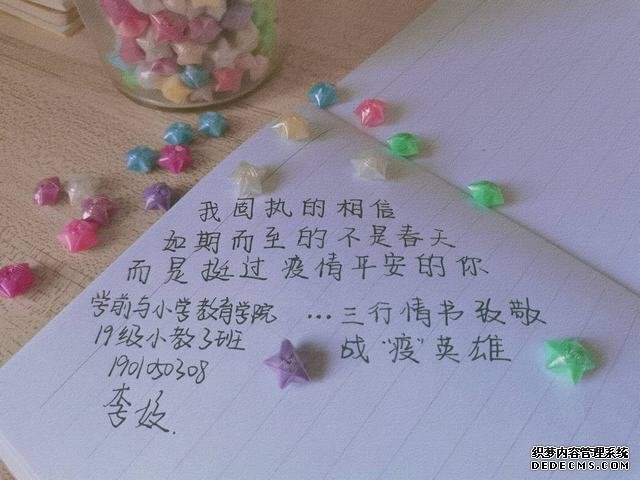 我固执的相信
如期而至的不是春天
而是挺过疫情平安的你
…三行情书致敬
战“疫”英雄
学前与小学教育学院
19级小教3班
1901050308
李
织梦内容管理系统
DEDECMS.COM